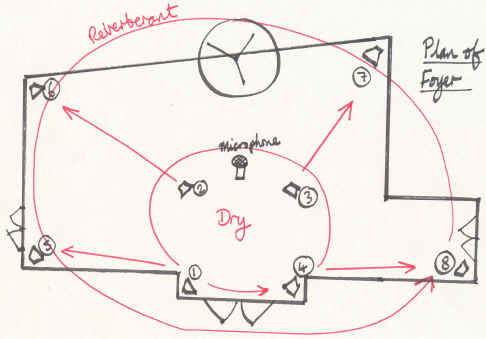 Reverberant
Plan of
Foyer
6
7
microphone
2
3
Dry
5
1
4
8